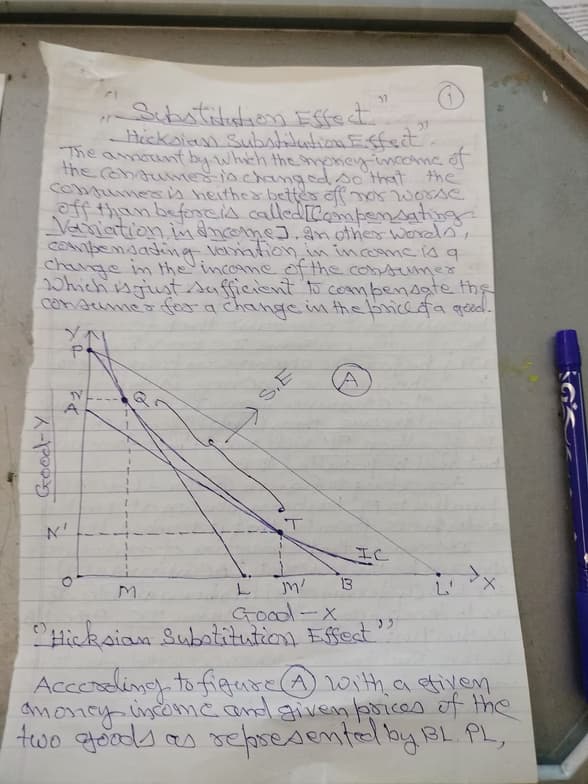 1
" Substitution Effect "
Hicksian Substitution Effect"
The amount by which the money-income of
the consumer is changed so that the
consumer is neither better off nor worse
off than before is called [Compensating
Variation in Income]. In other words,
compensating variation in income is a
change in the income of the consumer
which is just sufficient to compensate the
consumer for a change in the price of a good.
Y
P
N
A
Q
S.E
A
Good-Y
N'
T
IC
O
M
L
M'
B
L'
X
Good-X
"Hicksian Substitution Effect"
According to figure (A) with a given
money income and given prices of the
two goods as represented by BL PL,